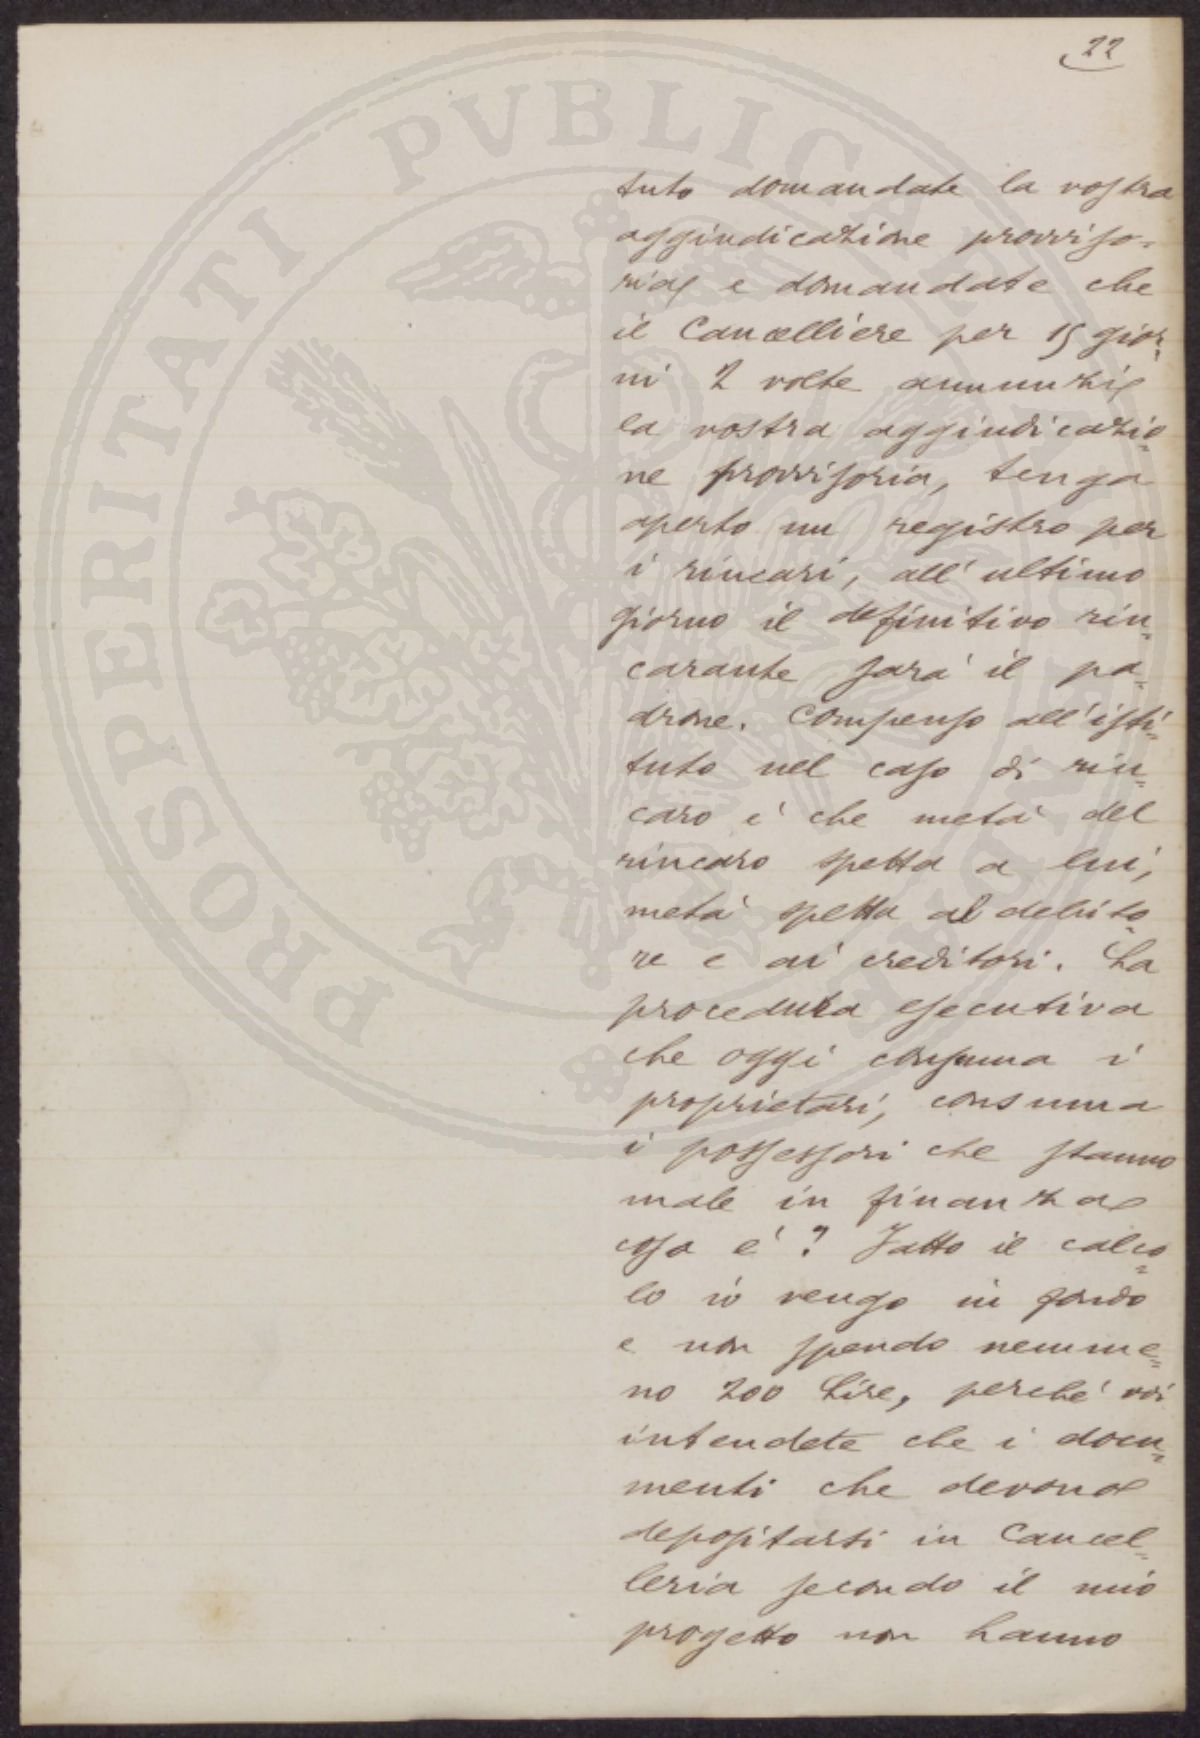 22
tuto domandate la vostra
aggiudicazione provviso-
ria e domandate che
il Cancelliere per 15 gior-
ni 2 volte annunzi
la vostra aggiudicazio-
ne provvisoria, tenga
aperto un registro per
i rincari, all'ultimo
giorno il definitivo rin-
carante sarà il pa-
drone. Compenso all'isti-
tuto nel caso di rin-
caro è che metà del
rincaro spetta a lui,
metà spetta al debito-
re e ai creditori. La
procedura esecutiva
che oggi consuma i
proprietari, consuma
i possessori che stanno
male in finanza
cosa è? Fatto il calco-
lo io vengo in fondo
e non spendo nemme-
no 200 Lire, perché voi
intendete che i docu-
menti che devono
depositarsi in Cancel-
leria secondo il mio
progetto non hanno
PROSPERITATI PVBLICAE